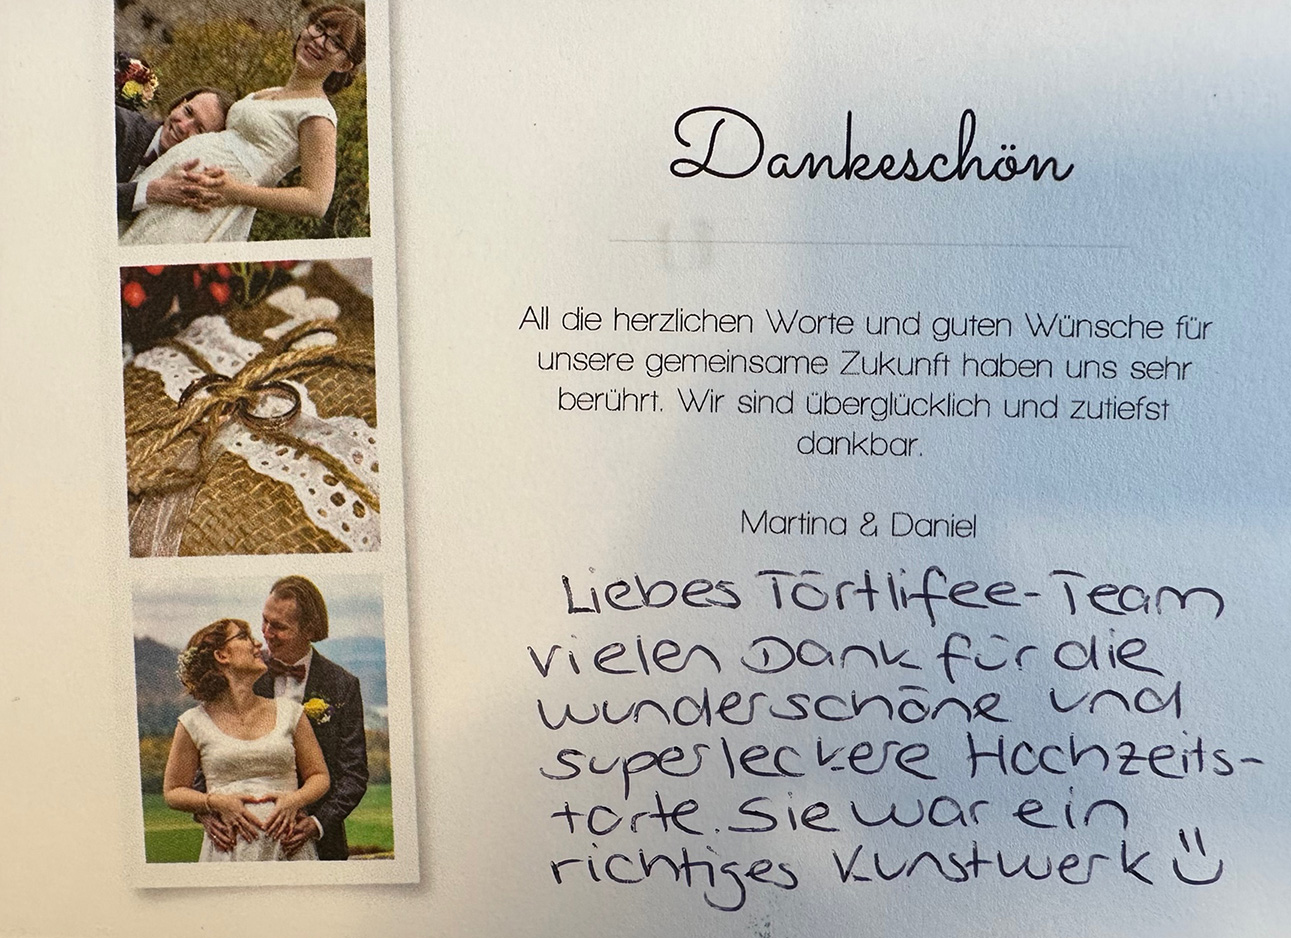 Dankeschön
All die herzlichen Worte und guten Wünsche für
unsere gemeinsame Zukunft haben uns sehr
berührt. Wir sind überglücklich und zutiefst
dankbar.
Martina & Daniel
Liebes Törtlifee-Team
vielen Dank für die
wunderschöne und
superleckere Hochzeits-
torte. Sie war ein
richtiges Kunstwerk